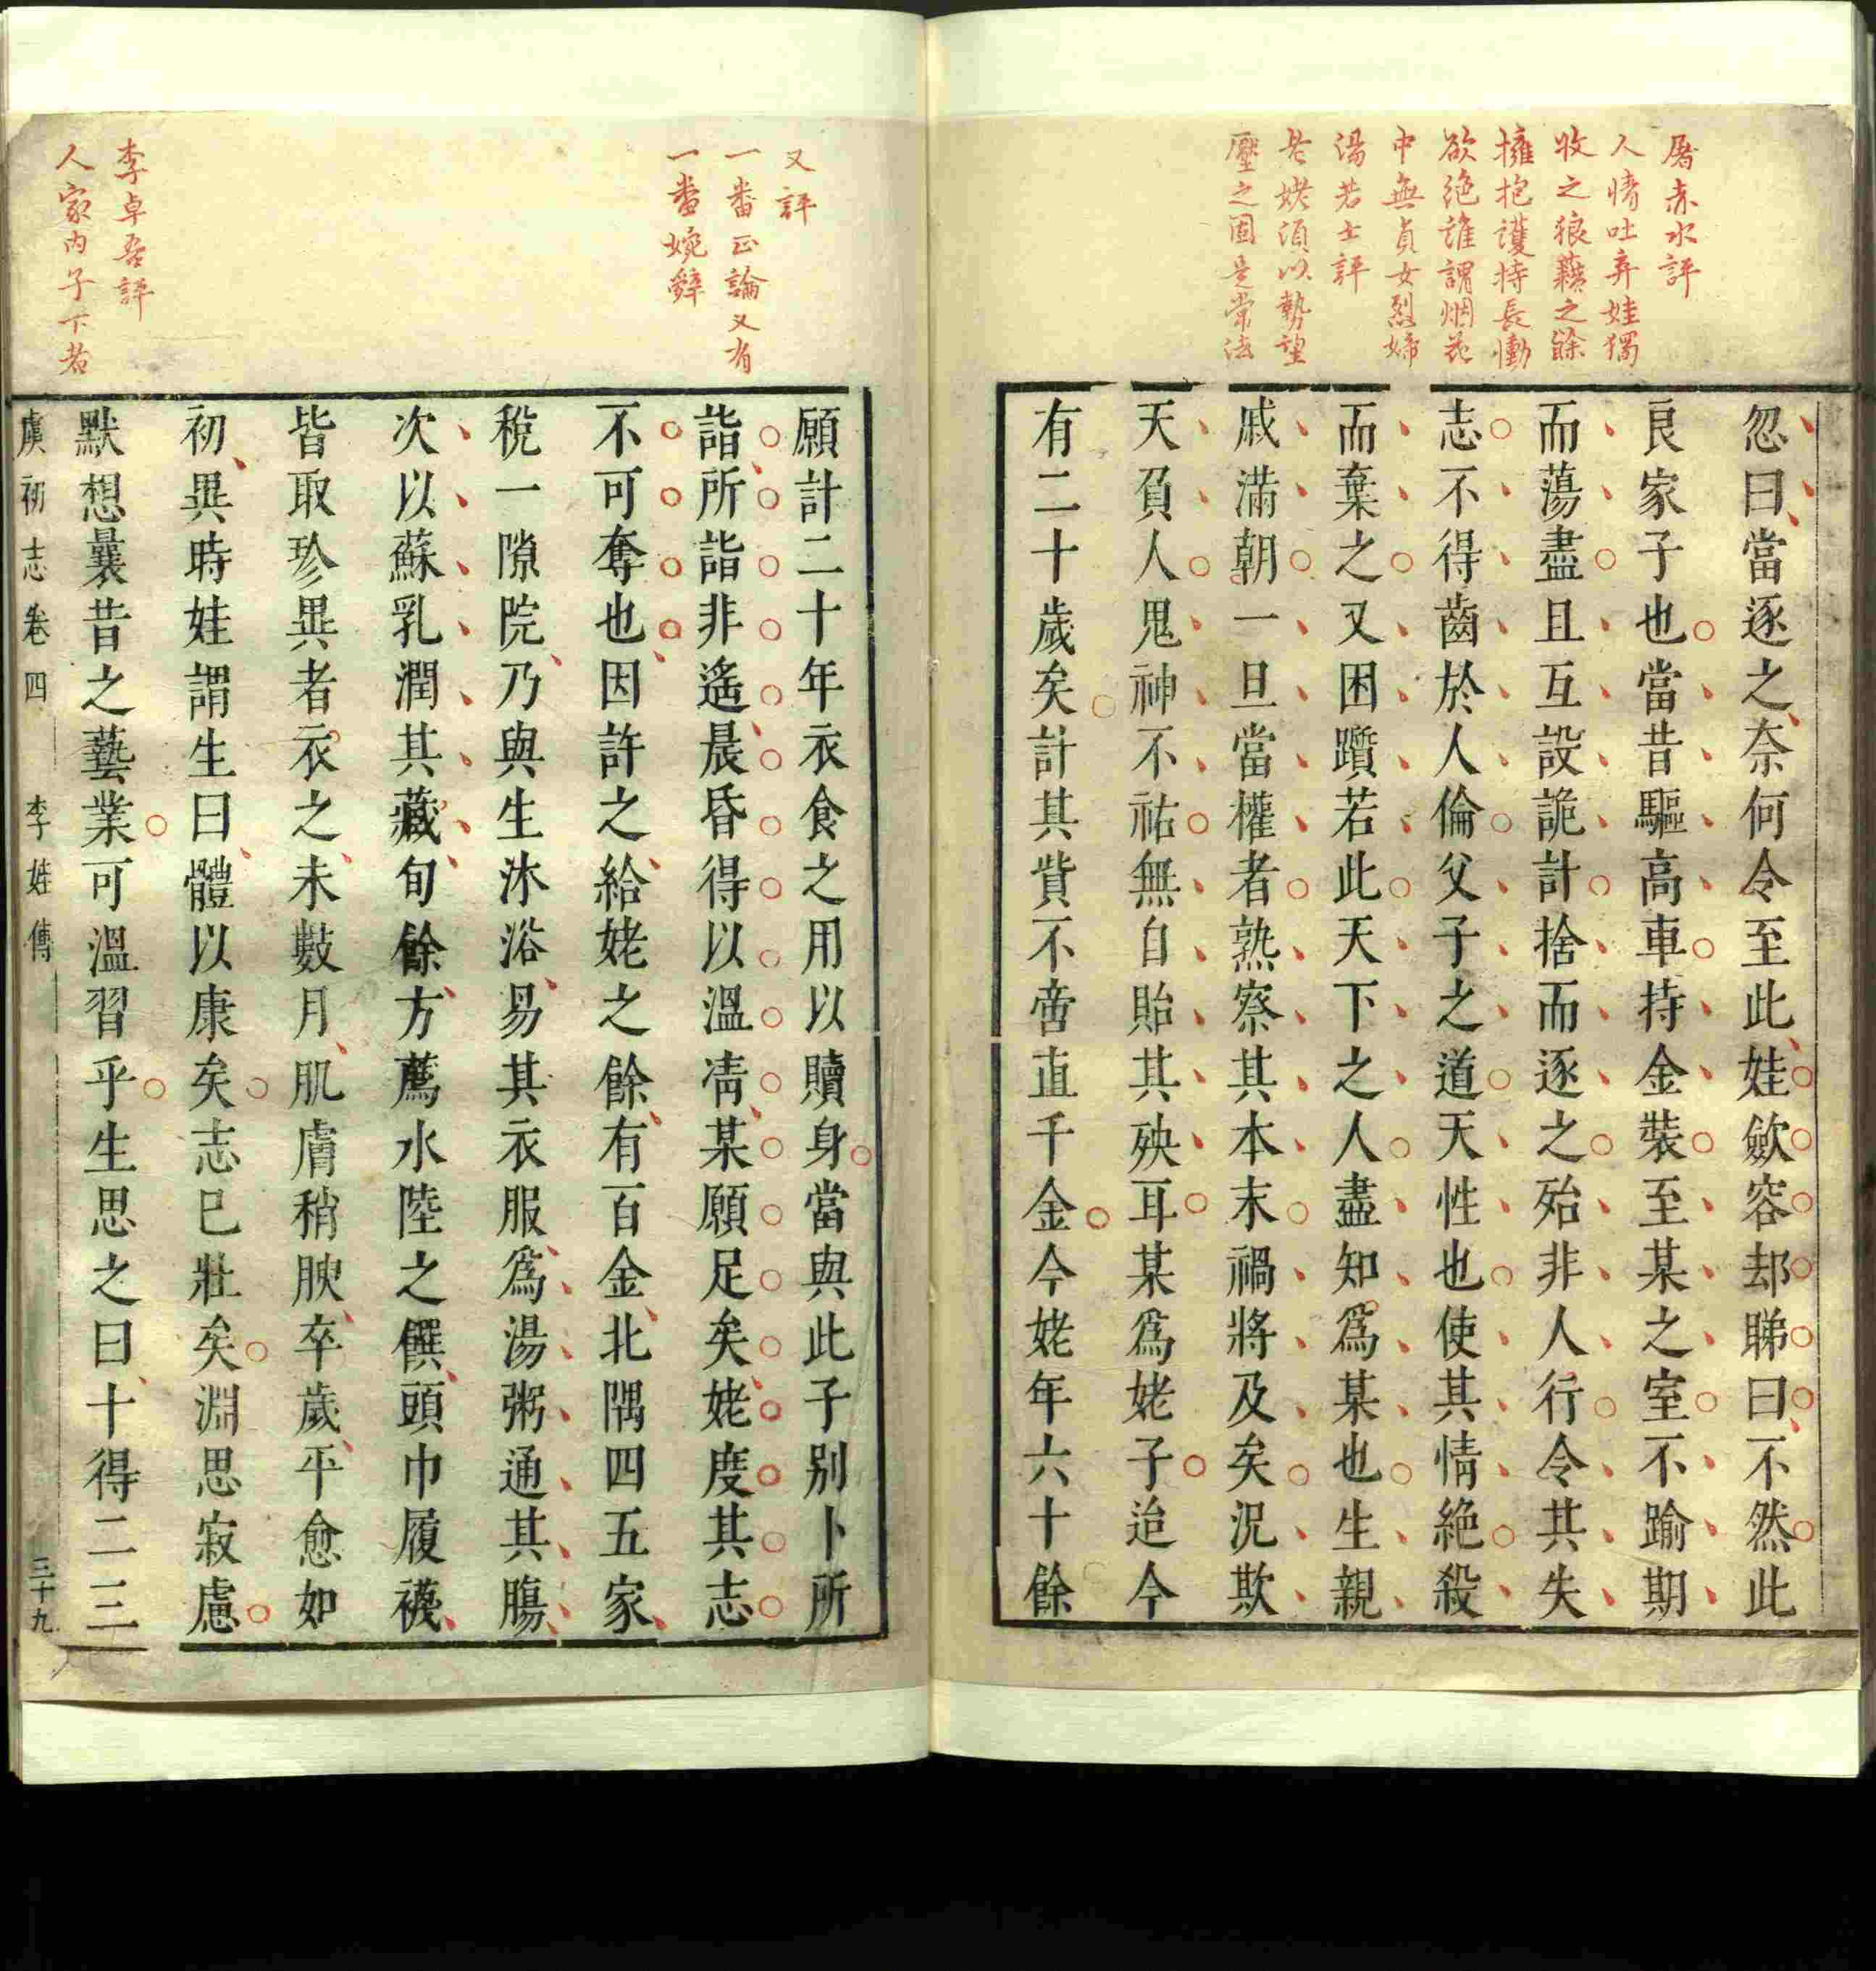 屠赤水評
人情吐弃娃獨
收之狼藉之餘
擁抱護持長慟
欲絶誰謂烟花
中無貞女烈婦
湯若士評
老姥須以勢望
壓之固是常法
忽曰當逐之奈何令至此娃斂容却睇曰不然此
良家子也當昔驅高車持金裝至某之室不踰期
而蕩盡且互設詭計捨而逐之殆非人行令其失
志不得齒於人倫父子之道天性也使其情絶殺
而棄之又困躓若此天下之人盡知爲某也生親
戚滿朝一旦當權者熟察其本末禍將及矣況欺
天負人鬼神不祐無自貽其殃耳某爲姥子迨今
有二十歲矣計其貲不啻直千金今姥年六十餘
又評
一番正論又有
一番婉辭
李卓吾評
人家内子下若
願計二十年衣食之用以贖身當與此子別卜所
詣所詣非遙晨昏得以溫凊某願足矣姥度其志
不可奪也因許之給姥之餘有百金北隅四五家
稅一隙院乃與生沐浴易其衣服爲湯粥通其腸
次以蘇乳潤其藏旬餘方薦水陸之饌頭巾履襪
皆取珍異者衣之未數月肌膚稍腴卒歲平愈如
初異時娃謂生曰體以康矣志已壯矣淵思寂慮
默想曩昔之藝業可溫習乎生思之曰十得二三
虞初志卷四 李娃傳 三十九